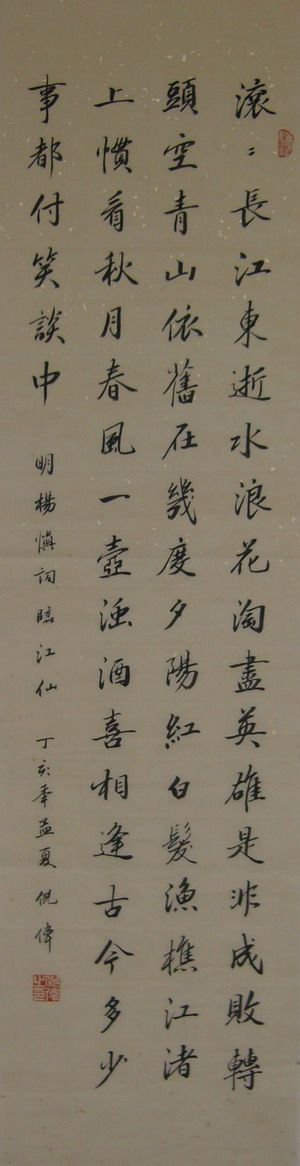 滾〻長江東逝水浪花淘盡英雄是非成敗轉
頭空青山依舊在幾度夕陽紅白髮漁樵江渚
上慣看秋月春風一壺濁酒喜相逢古今多少
事都付笑談中 明楊慎詞臨江仙 丁亥年孟夏倪偉